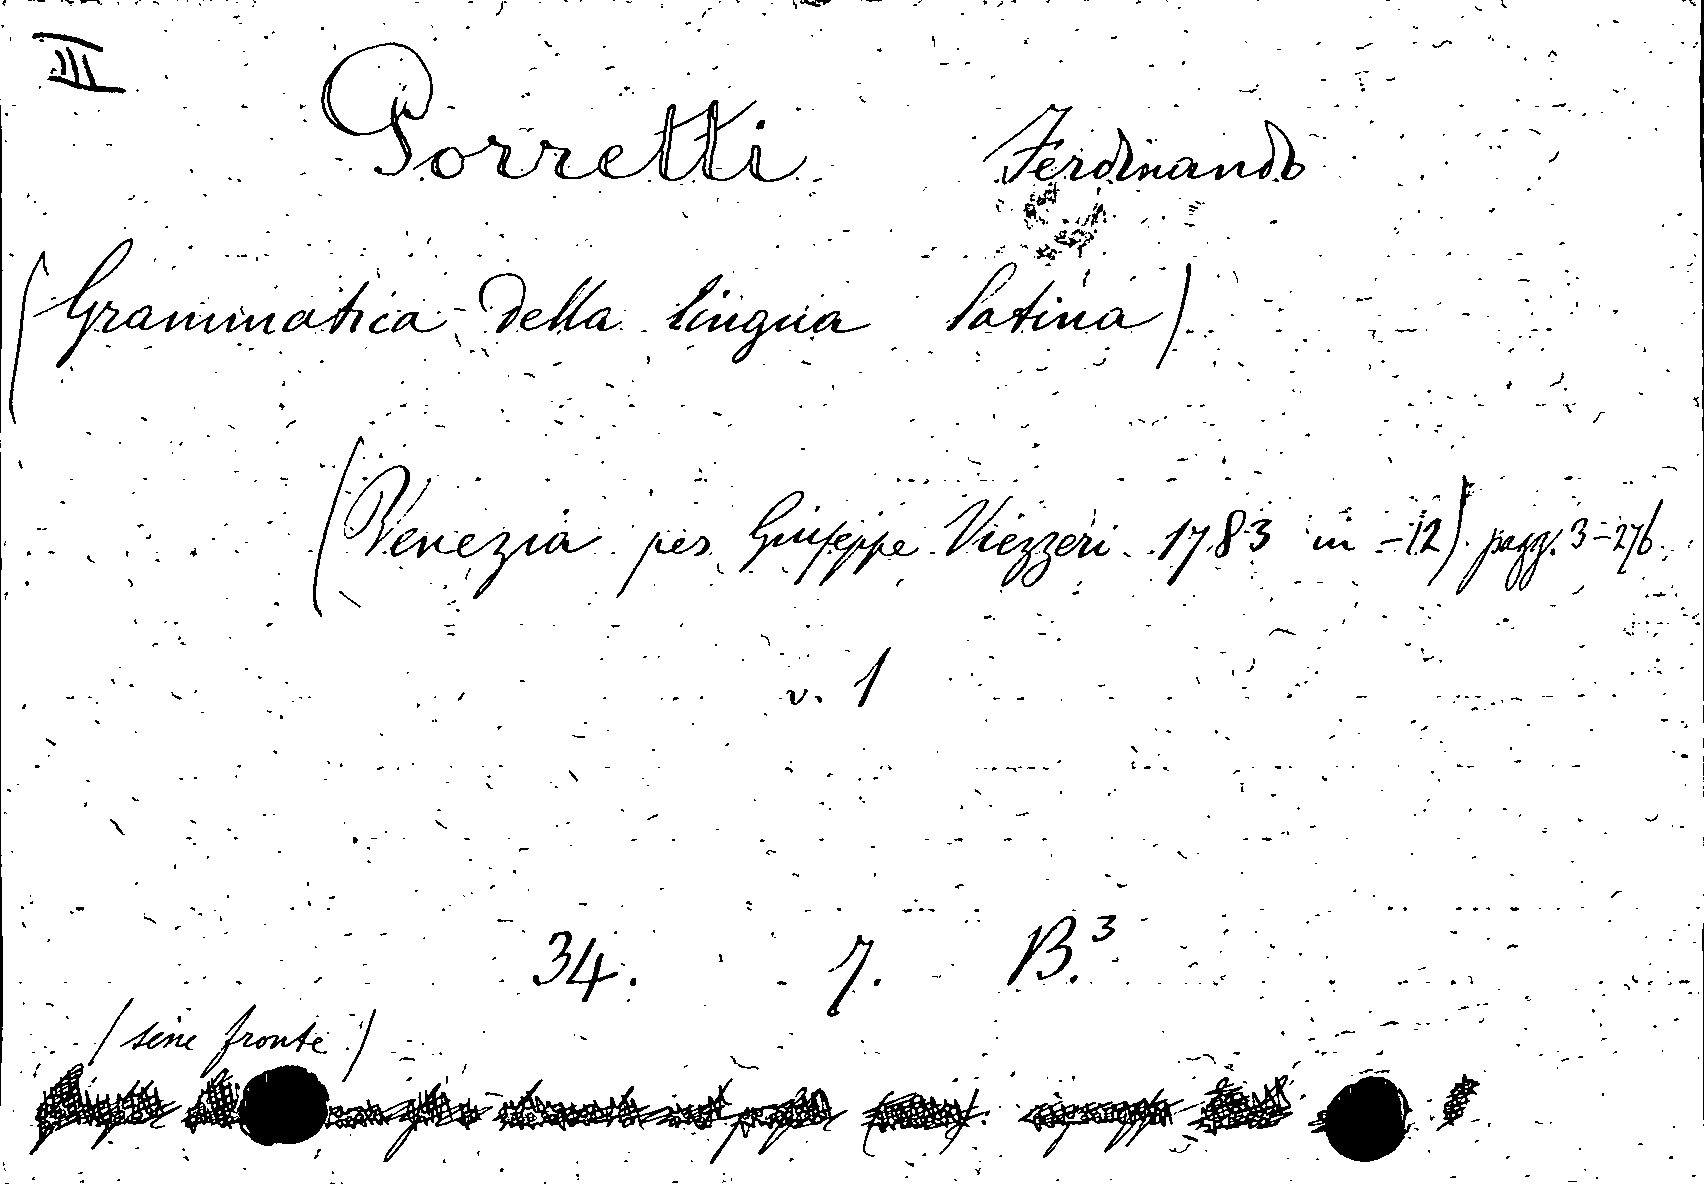 III
Porretti Ferdinando
(Grammatica della lingua latina)
(Venezia per Giuseppe Viezzeri 1783 in -12) pagg. 3-276
v. 1
34. 7. B.³
(sine fronte)